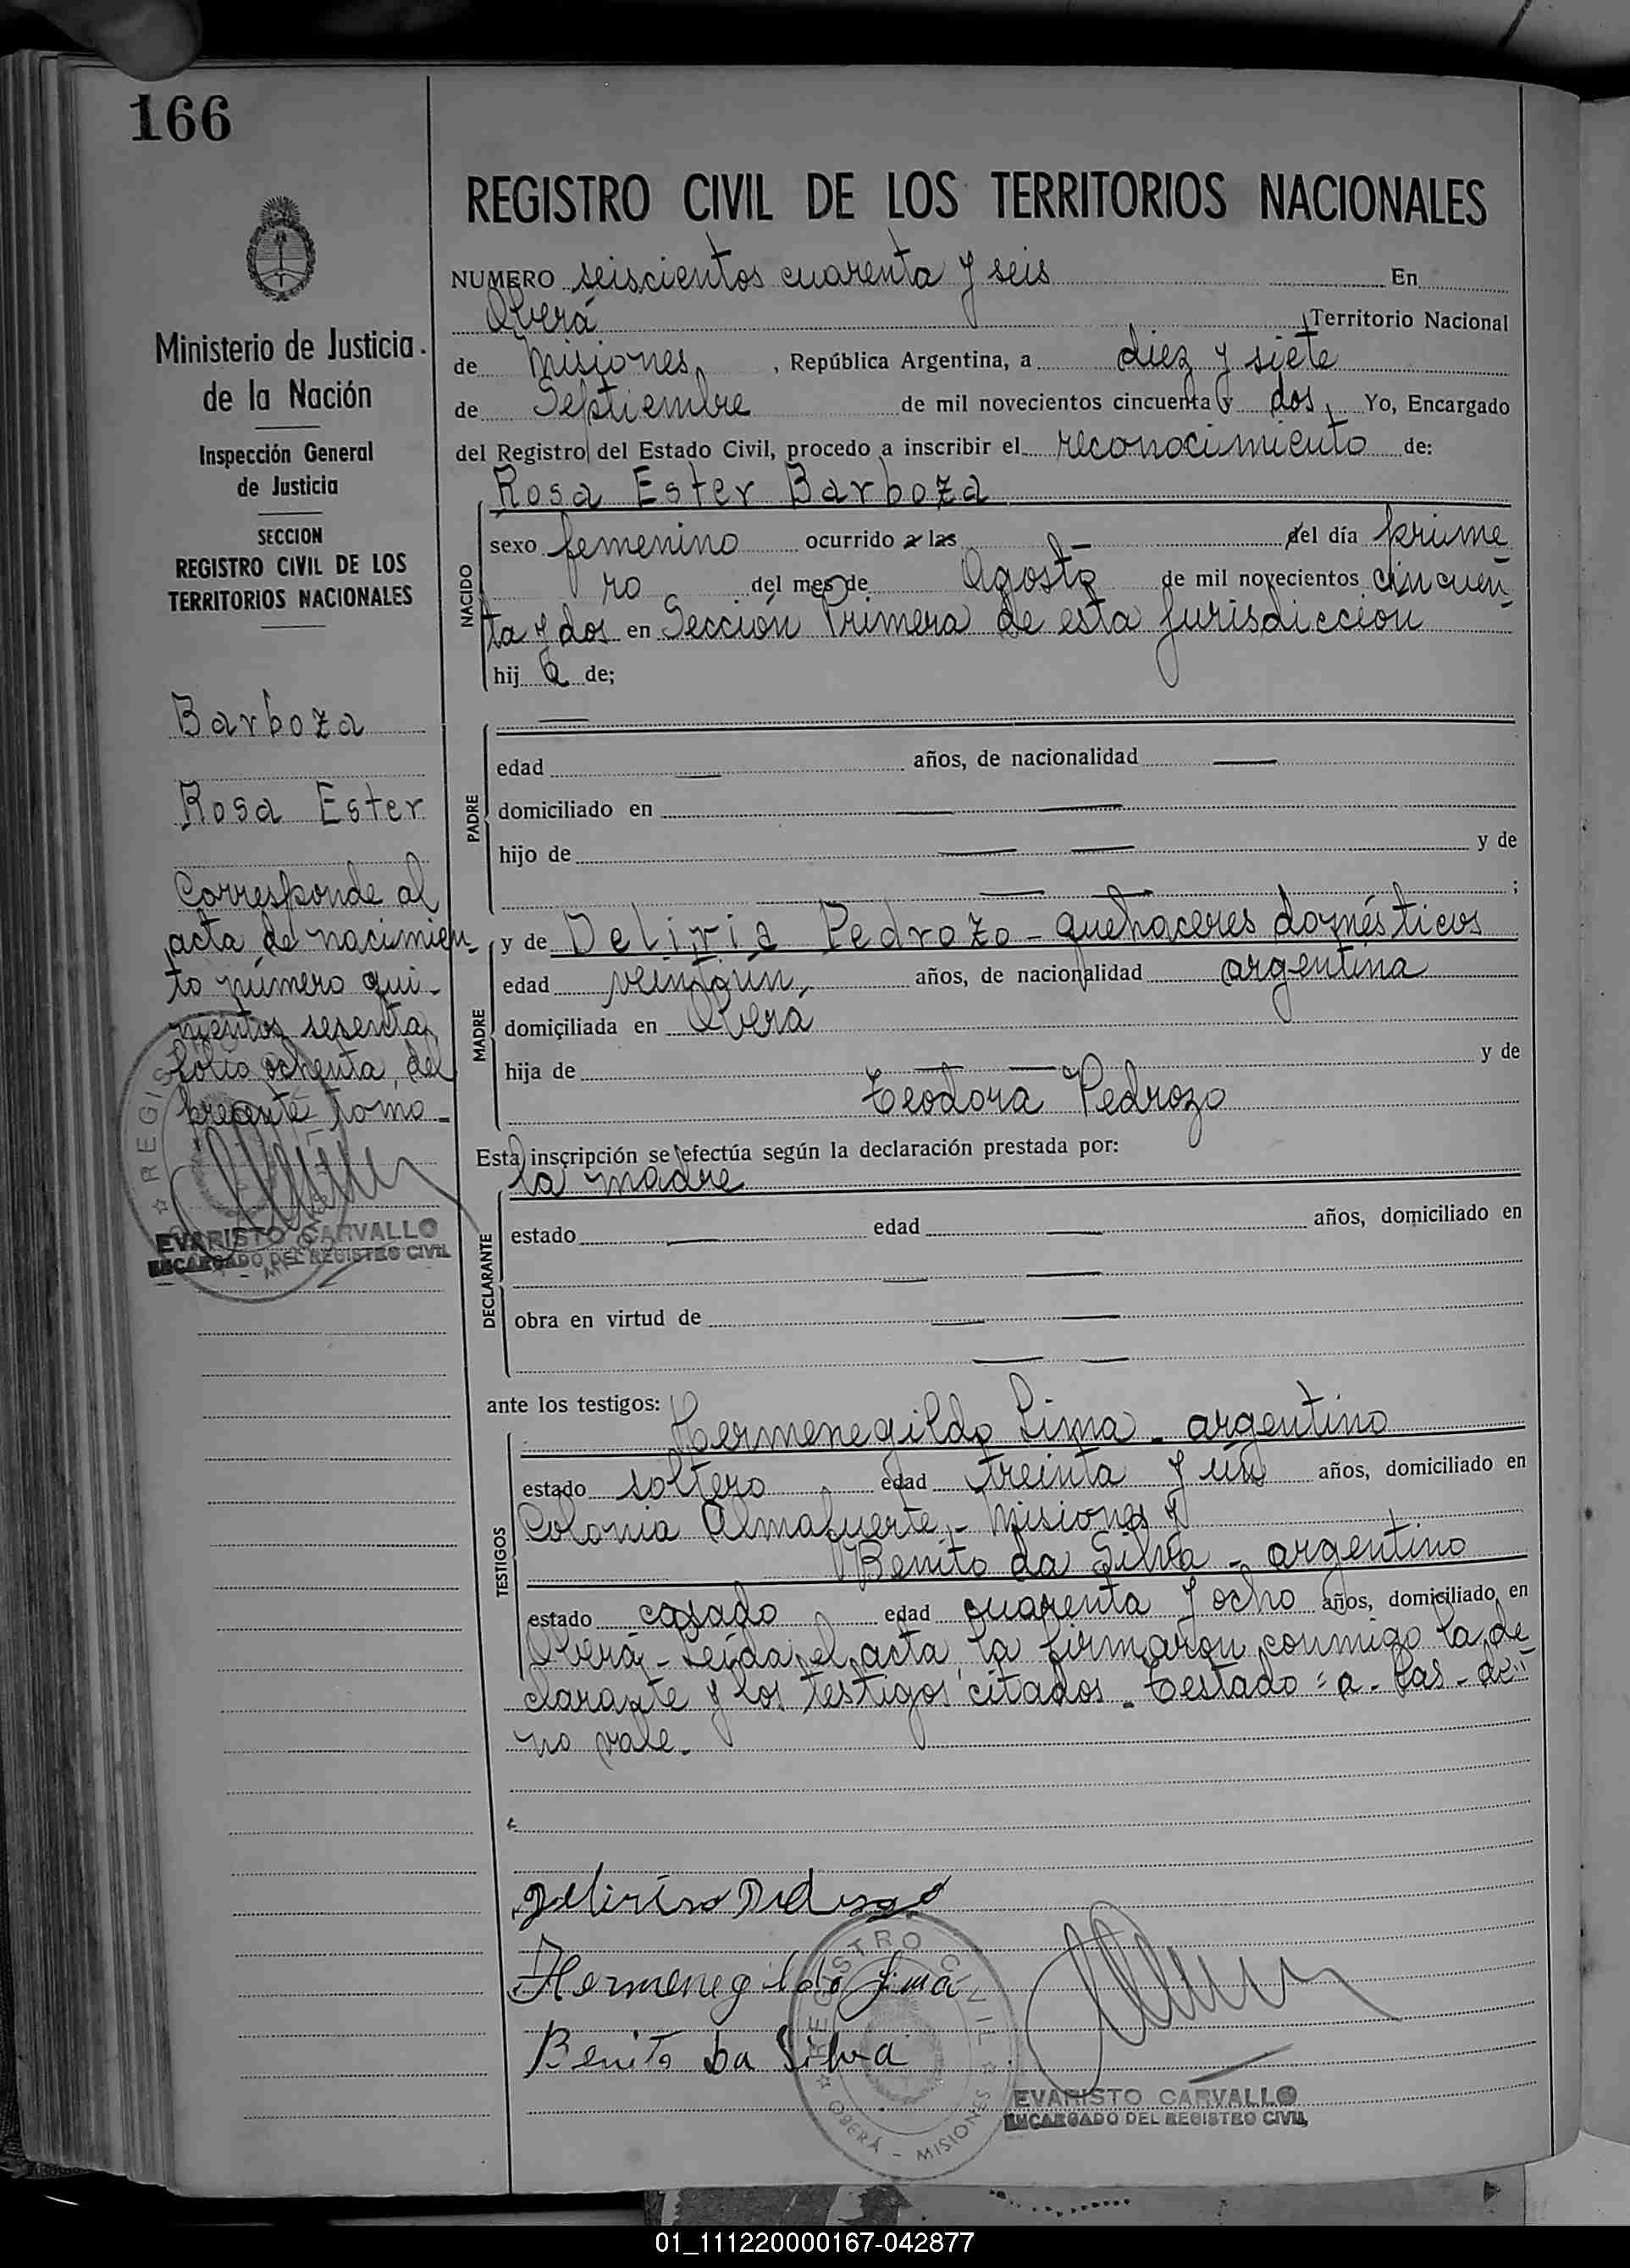 166
REGISTRO CIVIL DE LOS TERRITORIOS NACIONALES
Ministerio de Justicia
de la Nación
Inspección General
de Justicia
SECCION
REGISTRO CIVIL DE LOS
TERRITORIOS NACIONALES
Barboza
Rosa Ester
Corresponde al
acta de nacimien-
to número qui-
nientos sesenta,
folio ochenta, del
presente tomo
EVARISTO CARVALLO
ENCARGADO DEL REGISTRO CIVIL
NUMERO seiscientos cuarenta y seis En
Oberá Territorio Nacional
de Misiones, República Argentina, a diez y siete
de Septiembre de mil novecientos cincuenta y dos, Yo, Encargado
del Registro del Estado Civil, procedo a inscribir el reconocimiento de:
Rosa Ester Barboza
NACIDO
sexo femenino ocurrido a las — del día prime
ro del mes de Agosto de mil novecientos cincuen-
ta y dos en Sección Primera de esta jurisdicción
hij a de;
PADRE
edad — años, de nacionalidad —
domiciliado en — —
hijo de — — y de
— — ;
MADRE
y de Deliria Pedrozo - quehaceres domésticos
edad veintiun, años, de nacionalidad argentina
domiciliada en Oberá
hija de — — y de
Teodora Pedrozo
Esta inscripción se efectúa según la declaración prestada por:
la madre
DECLARANTE
estado — edad — años, domiciliado en
— —
obra en virtud de — —
— —
ante los testigos:
TESTIGOS
Hermenegildo Lima - argentino
estado soltero edad treinta y un años, domiciliado en
Colonia Almafuerte - Misiones y
Benito da Silva - argentino
estado casado edad cuarenta y ocho años, domiciliado en
Oberá - Leída el acta, la firmaron conmigo la de
clarante y los testigos citados - Testado: a - las - d"
no vale -
Deliria Pedrozo
Hermenegildo Lima
Benito Da Silva
REGISTRO CIVIL
OBERÁ - MISIONES
EVARISTO CARVALLO
ENCARGADO DEL REGISTRO CIVIL
01_111220000167-042877